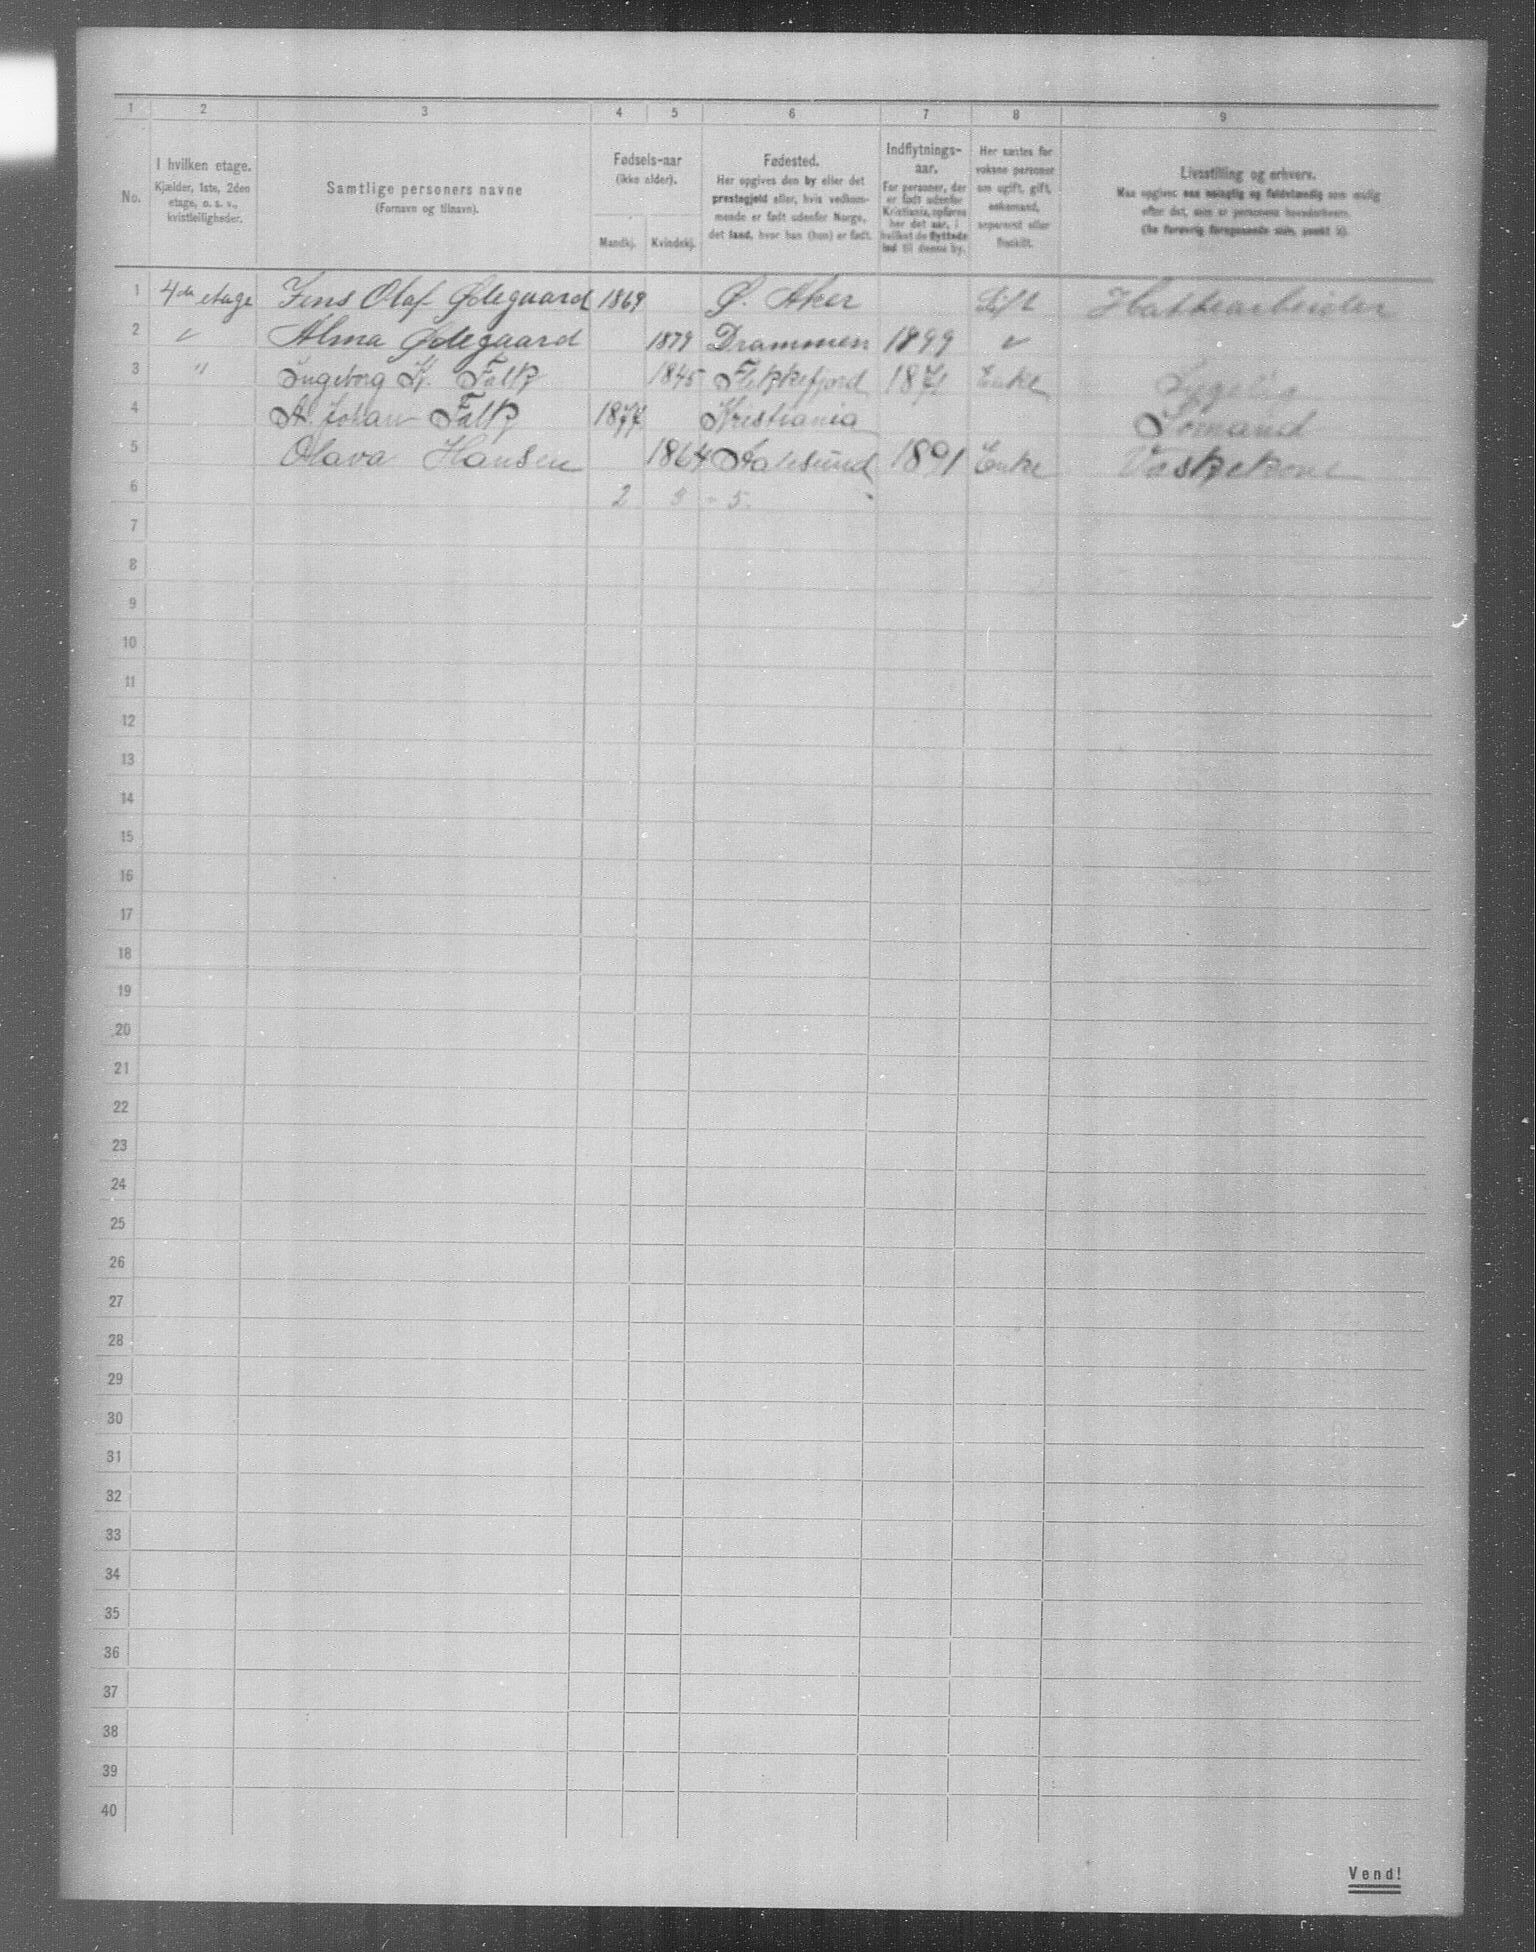 1 2 3 4 5 6 7 8 9
No.
I hvilken etage.
Kjælder, 1ste, 2den
etage, o. s. v.,
kvistleiligheder.
Samtlige personers navne
(Fornavn og tilnavn).
Fødsels-aar
(ikke alder).
Mandkj. Kvindekj.
Fødested.
Her opgives den by eller det
prestegjeld eller, hvis vedkom-
mende er født udenfor Norge,
det land, hvor han (hun) er født.
Indflytnings-
aar.
For personer, der
er født udenfor
Kristiania, opføres
her det aar, i
hvilket de flyttede
ind til denne by.
Her sættes for
voksne personer
om ugift, gift,
enkemand,
separeret eller
fraskilt.
Livsstilling og erhverv.
Maa opgives saa nøiagtig og fuldstændig som mulig
efter det, som er personens hovederhverv.
(Se forøvrig foregaaende side, punkt 5).
1 4de etage Jens Olaf Ødegaard 1869 Ø. Aker Gift Hattearbeider
2 " Alma Ødegaard 1879 Drammen 1899 "
3 " Ingeborg K. Falk 1845 Flekkefjord 187 Enke
4 A. Johan Falk 1877 Kristiania Sømand
5 Olava Hansen 1864 Aalesund 1891 Enke Vaskekone
6 2 3 - 5.
7
8
9
10
11
12
13
14
15
16
17
18
19
20
21
22
23
24
25
26
27
28
29
30
31
32
33
34
35
36
37
38
39
40
Vend!